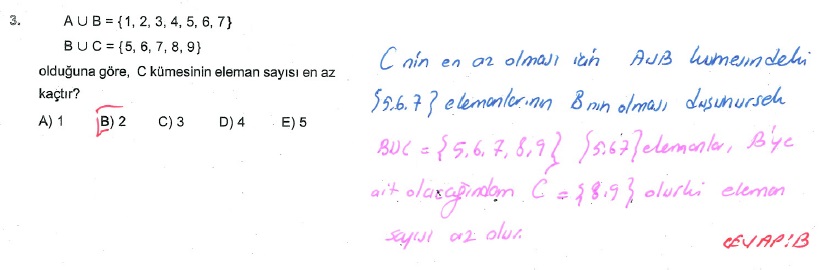 3. A ∪ B = {1, 2, 3, 4, 5, 6, 7}
B ∪ C = {5, 6, 7, 8, 9}
olduğuna göre, C kümesinin eleman sayısı en az
kaçtır?
A) 1 B) 2 C) 3 D) 4 E) 5
C nin en az olması için AUB kümesindeki
{5.6.7} elemanlarının B nın olması düşünürsek
BUC = {5,6,7,8,9} {5.6.7} elemanlar, B'ye
ait olacağından C = {8.9} olurki eleman
sayısı az olur.
CEVAP:B